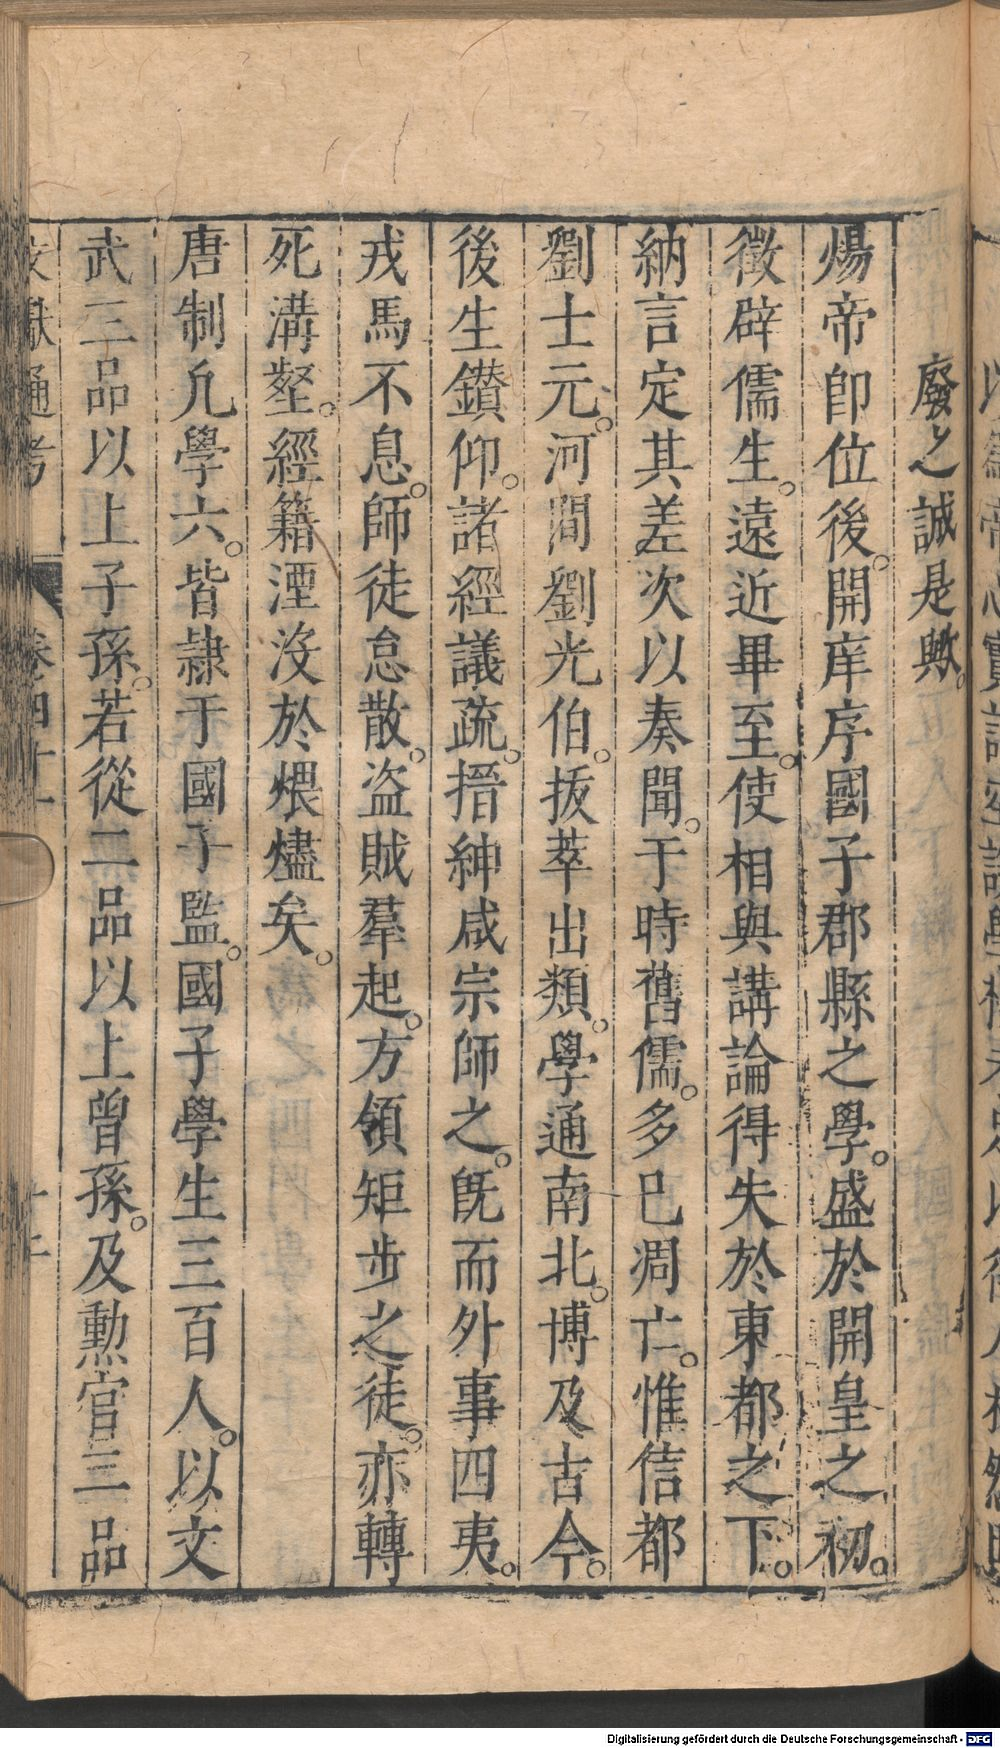 廢之誠是歟。
煬帝卽位後。開庠序國子郡縣之學。盛於開皇之初。
徵辟儒生。遠近畢至。使相與講論得失於東都之下。
納言定其差次以奏聞。于時舊儒。多巳凋亡。惟信都
劉士元。河間劉光伯。拔萃出類。學通南北。博及古今。
後生鑚仰。諸經議疏。搢紳咸宗師之。旣而外事四夷。
戎馬不息。師徒怠散。盜賊羣起。方領矩步之徒。亦轉
死溝壑。經籍湮沒於煨燼矣。
唐制凡學六。皆隷于國子監。國子學生三百人。以文
武三品以上子孫。若從二品以上曾孫。及勲官二品
文獻通考 卷四十一
Digitalisierung gefördert durch die Deutsche Forschungsgemeinschaft - DFG